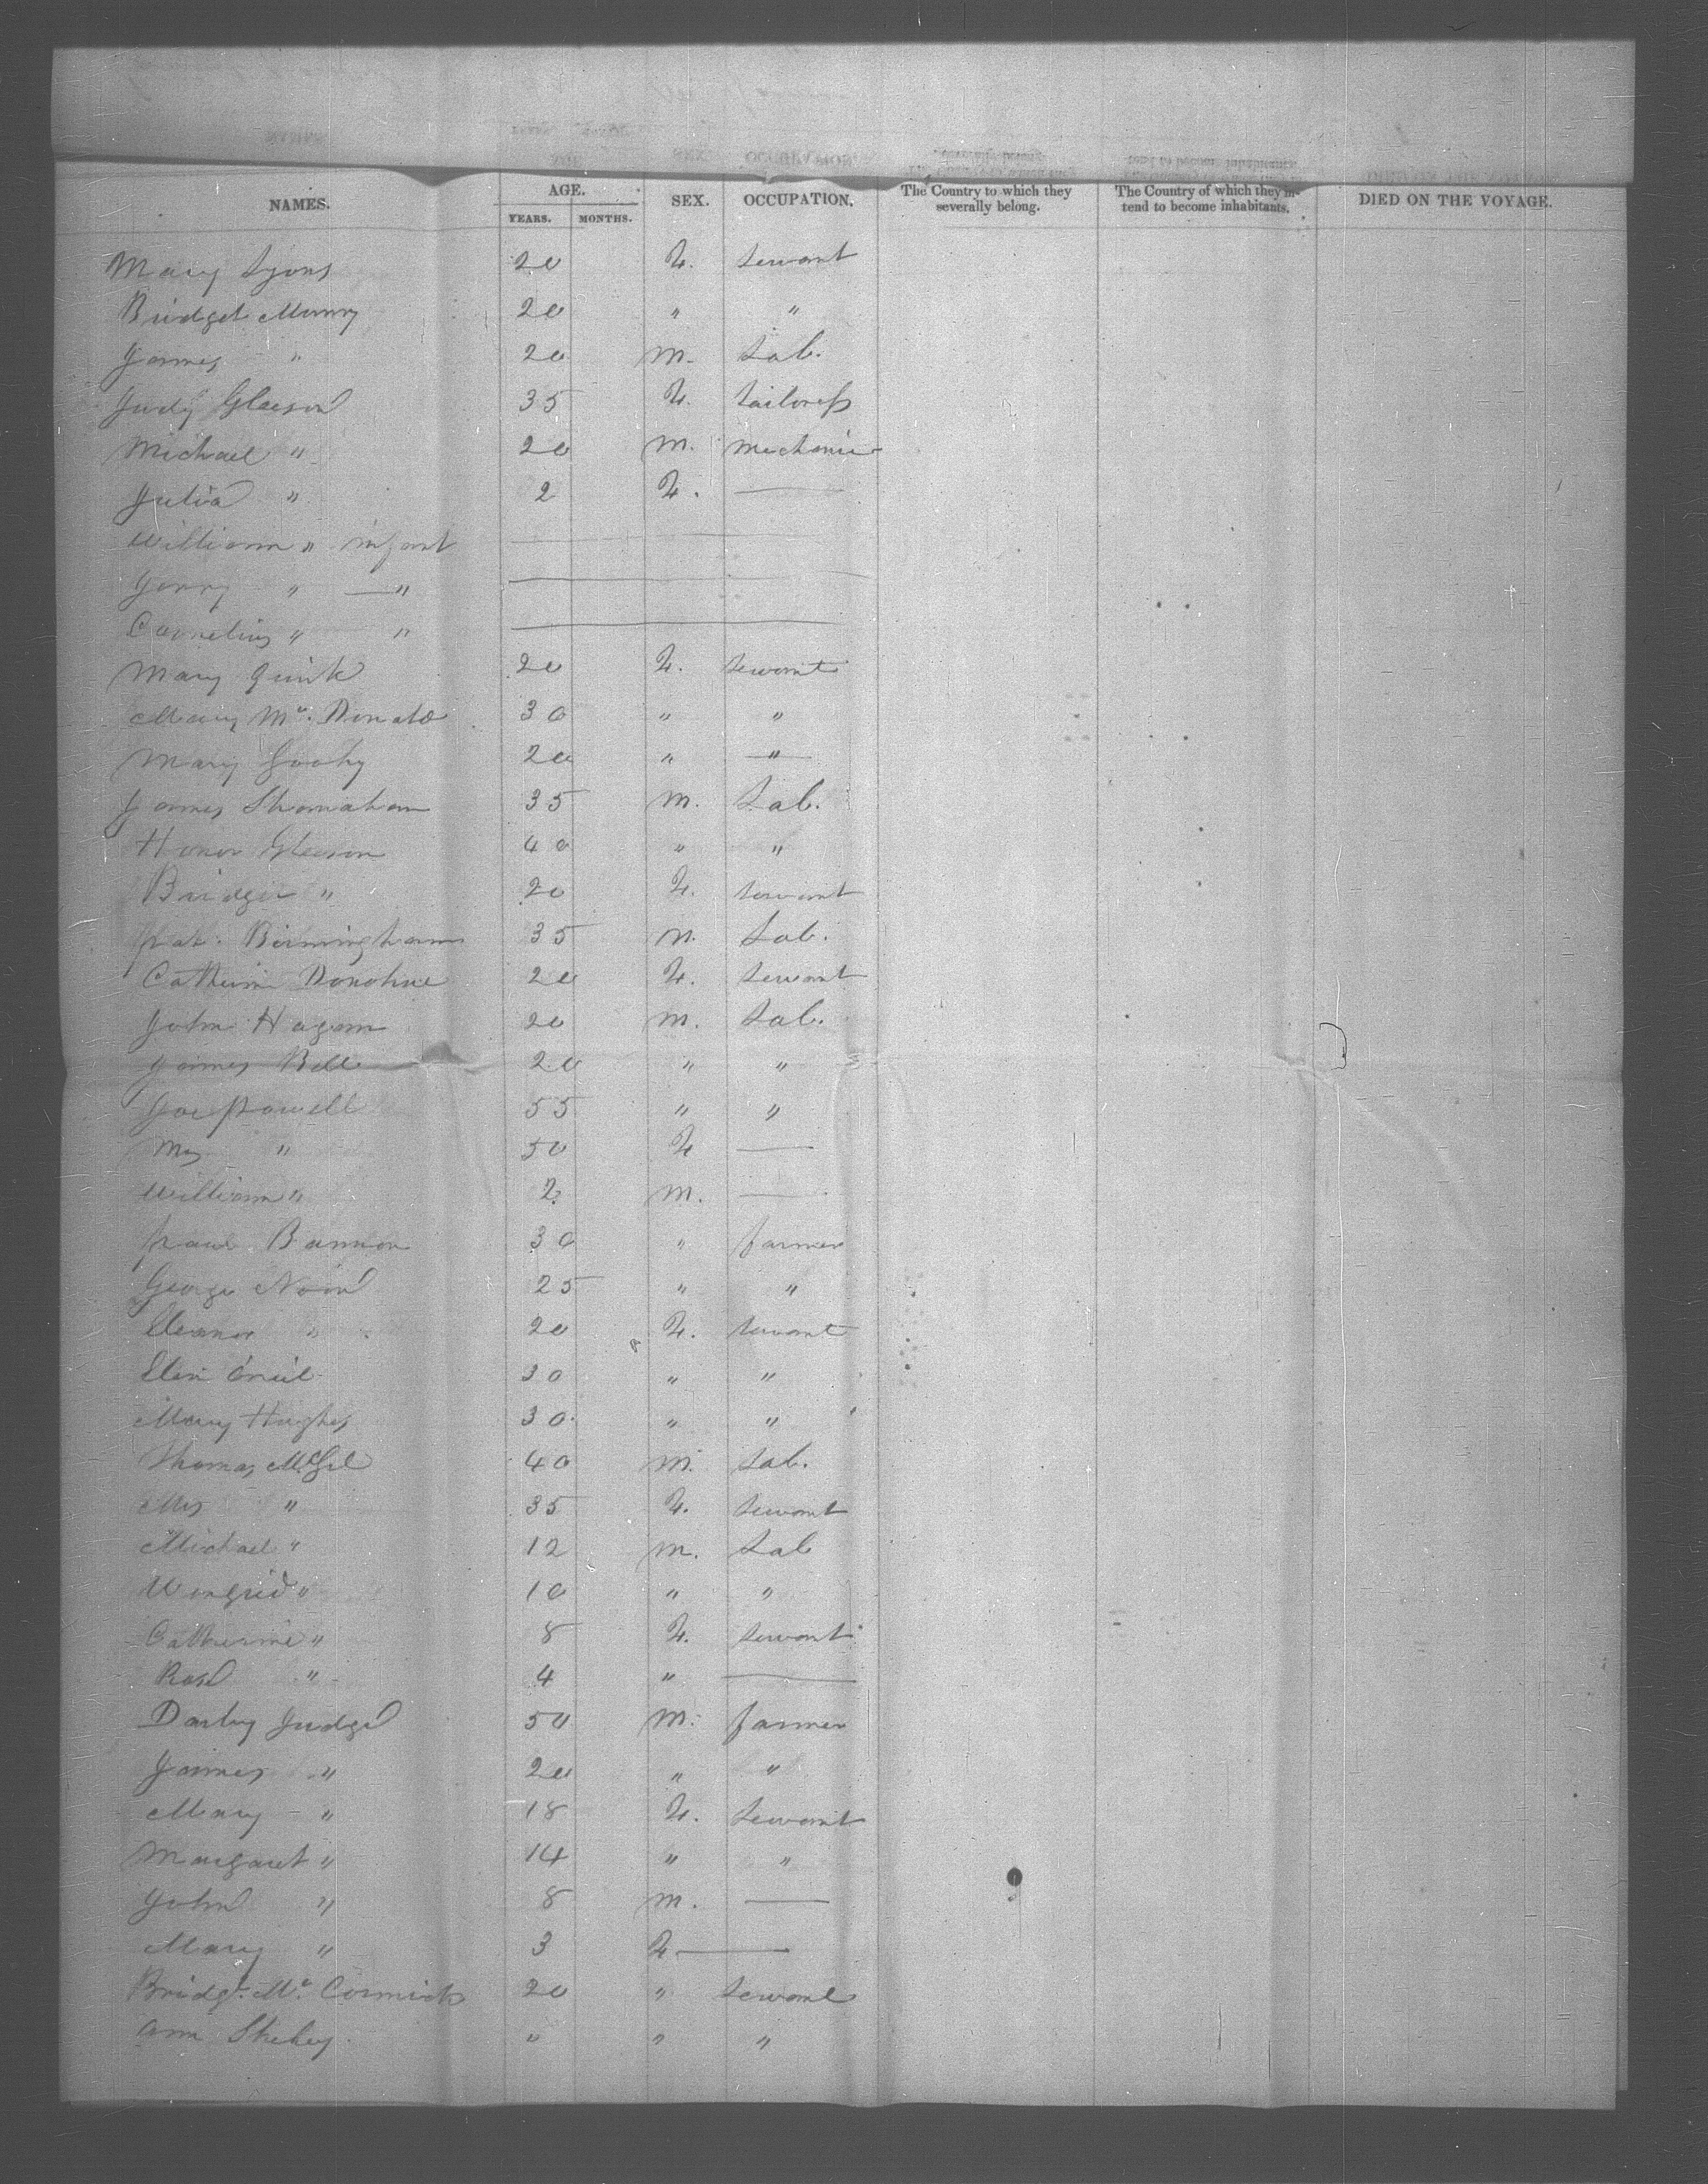 NAMES. AGE. SEX. OCCUPATION. The Country to which they severally belong. The Country of which they intend to become inhabitants. DIED ON THE VOYAGE.
YEARS. MONTHS.
Mary Lyons 20 F. Servant
Bridget Murry 20 " "
James " 20 M. Lab.
Judy Gleeson 35 F. tailoress
Michael " 20 M. Mechanic
Julia " 2 F. —
William " infant —
Jerry " — " —
Cornelius " " —
Mary Quirk 20 F. Servant
Mary Mc. Donald 30 " "
Mary 20 " "
James Shanahan 35 M. Lab.
Honor Gleeson 40 " "
Bridget " 20 F. servant
pat. Birmingham 35 M. Lab.
Catherine Donohue 20 F. Servant
John Hagan 20 M. Lab.
James Bell 20 " "
Joe powell 55 " "
Mrs " 50 F —
William " 2 M. —
Bannon 30 " farmer
George 25 " "
Eleanor " 20 F. servant
Ellen O'neil 30 " "
Mary Hughes 30 " "
Thomas McGil 40 M. Lab.
Mrs " 35 F. Servant
Michael " 12 M. Lab
" 10 " "
Catherine " 8 F. Servant
Rose " 4 " —
Darby Judge 50 M. farmer
James " 20 " "
Mary " 18 F. Servant
Margaret " 14 " "
John " 8 M. —
Mary " 3 F —
Bridgt. Mc. Cormick 20 " Servant
Ann Shehey " " "